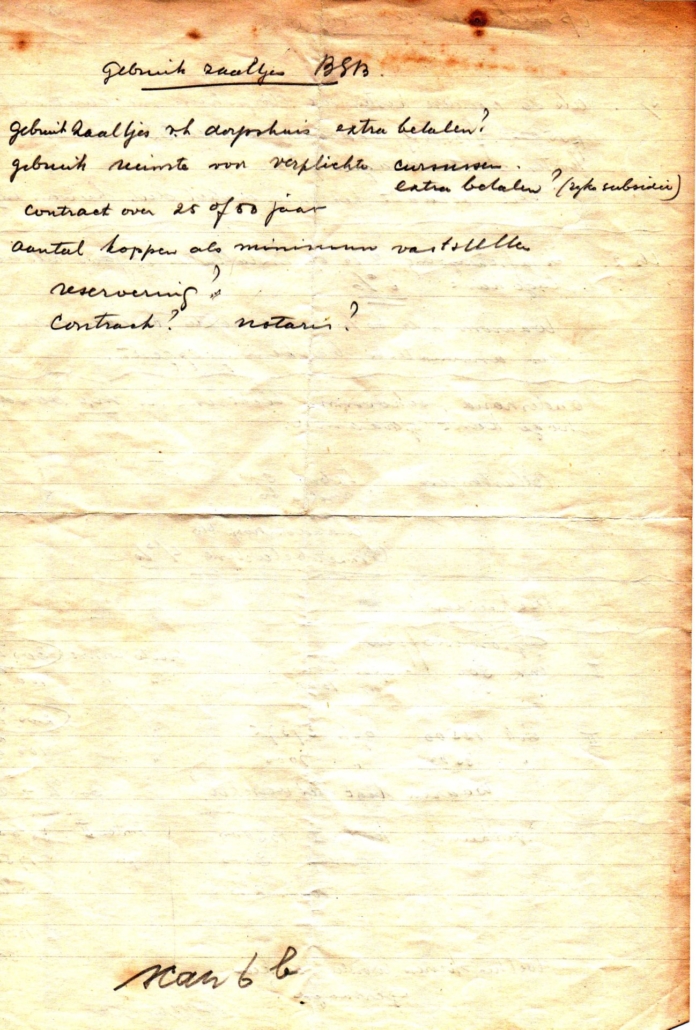 gebruik zaaltjes BGB.
gebruik zaaltjes v.h dorpshuis extra betalen?
gebruik ruimte voor verplichte cursussen.
extra betalen? (rijks subsidie)
contract over 25 of 50 jaar
aantal koppen als minimum vaststellen
reservering?
contract? notaris?
scan 6 b